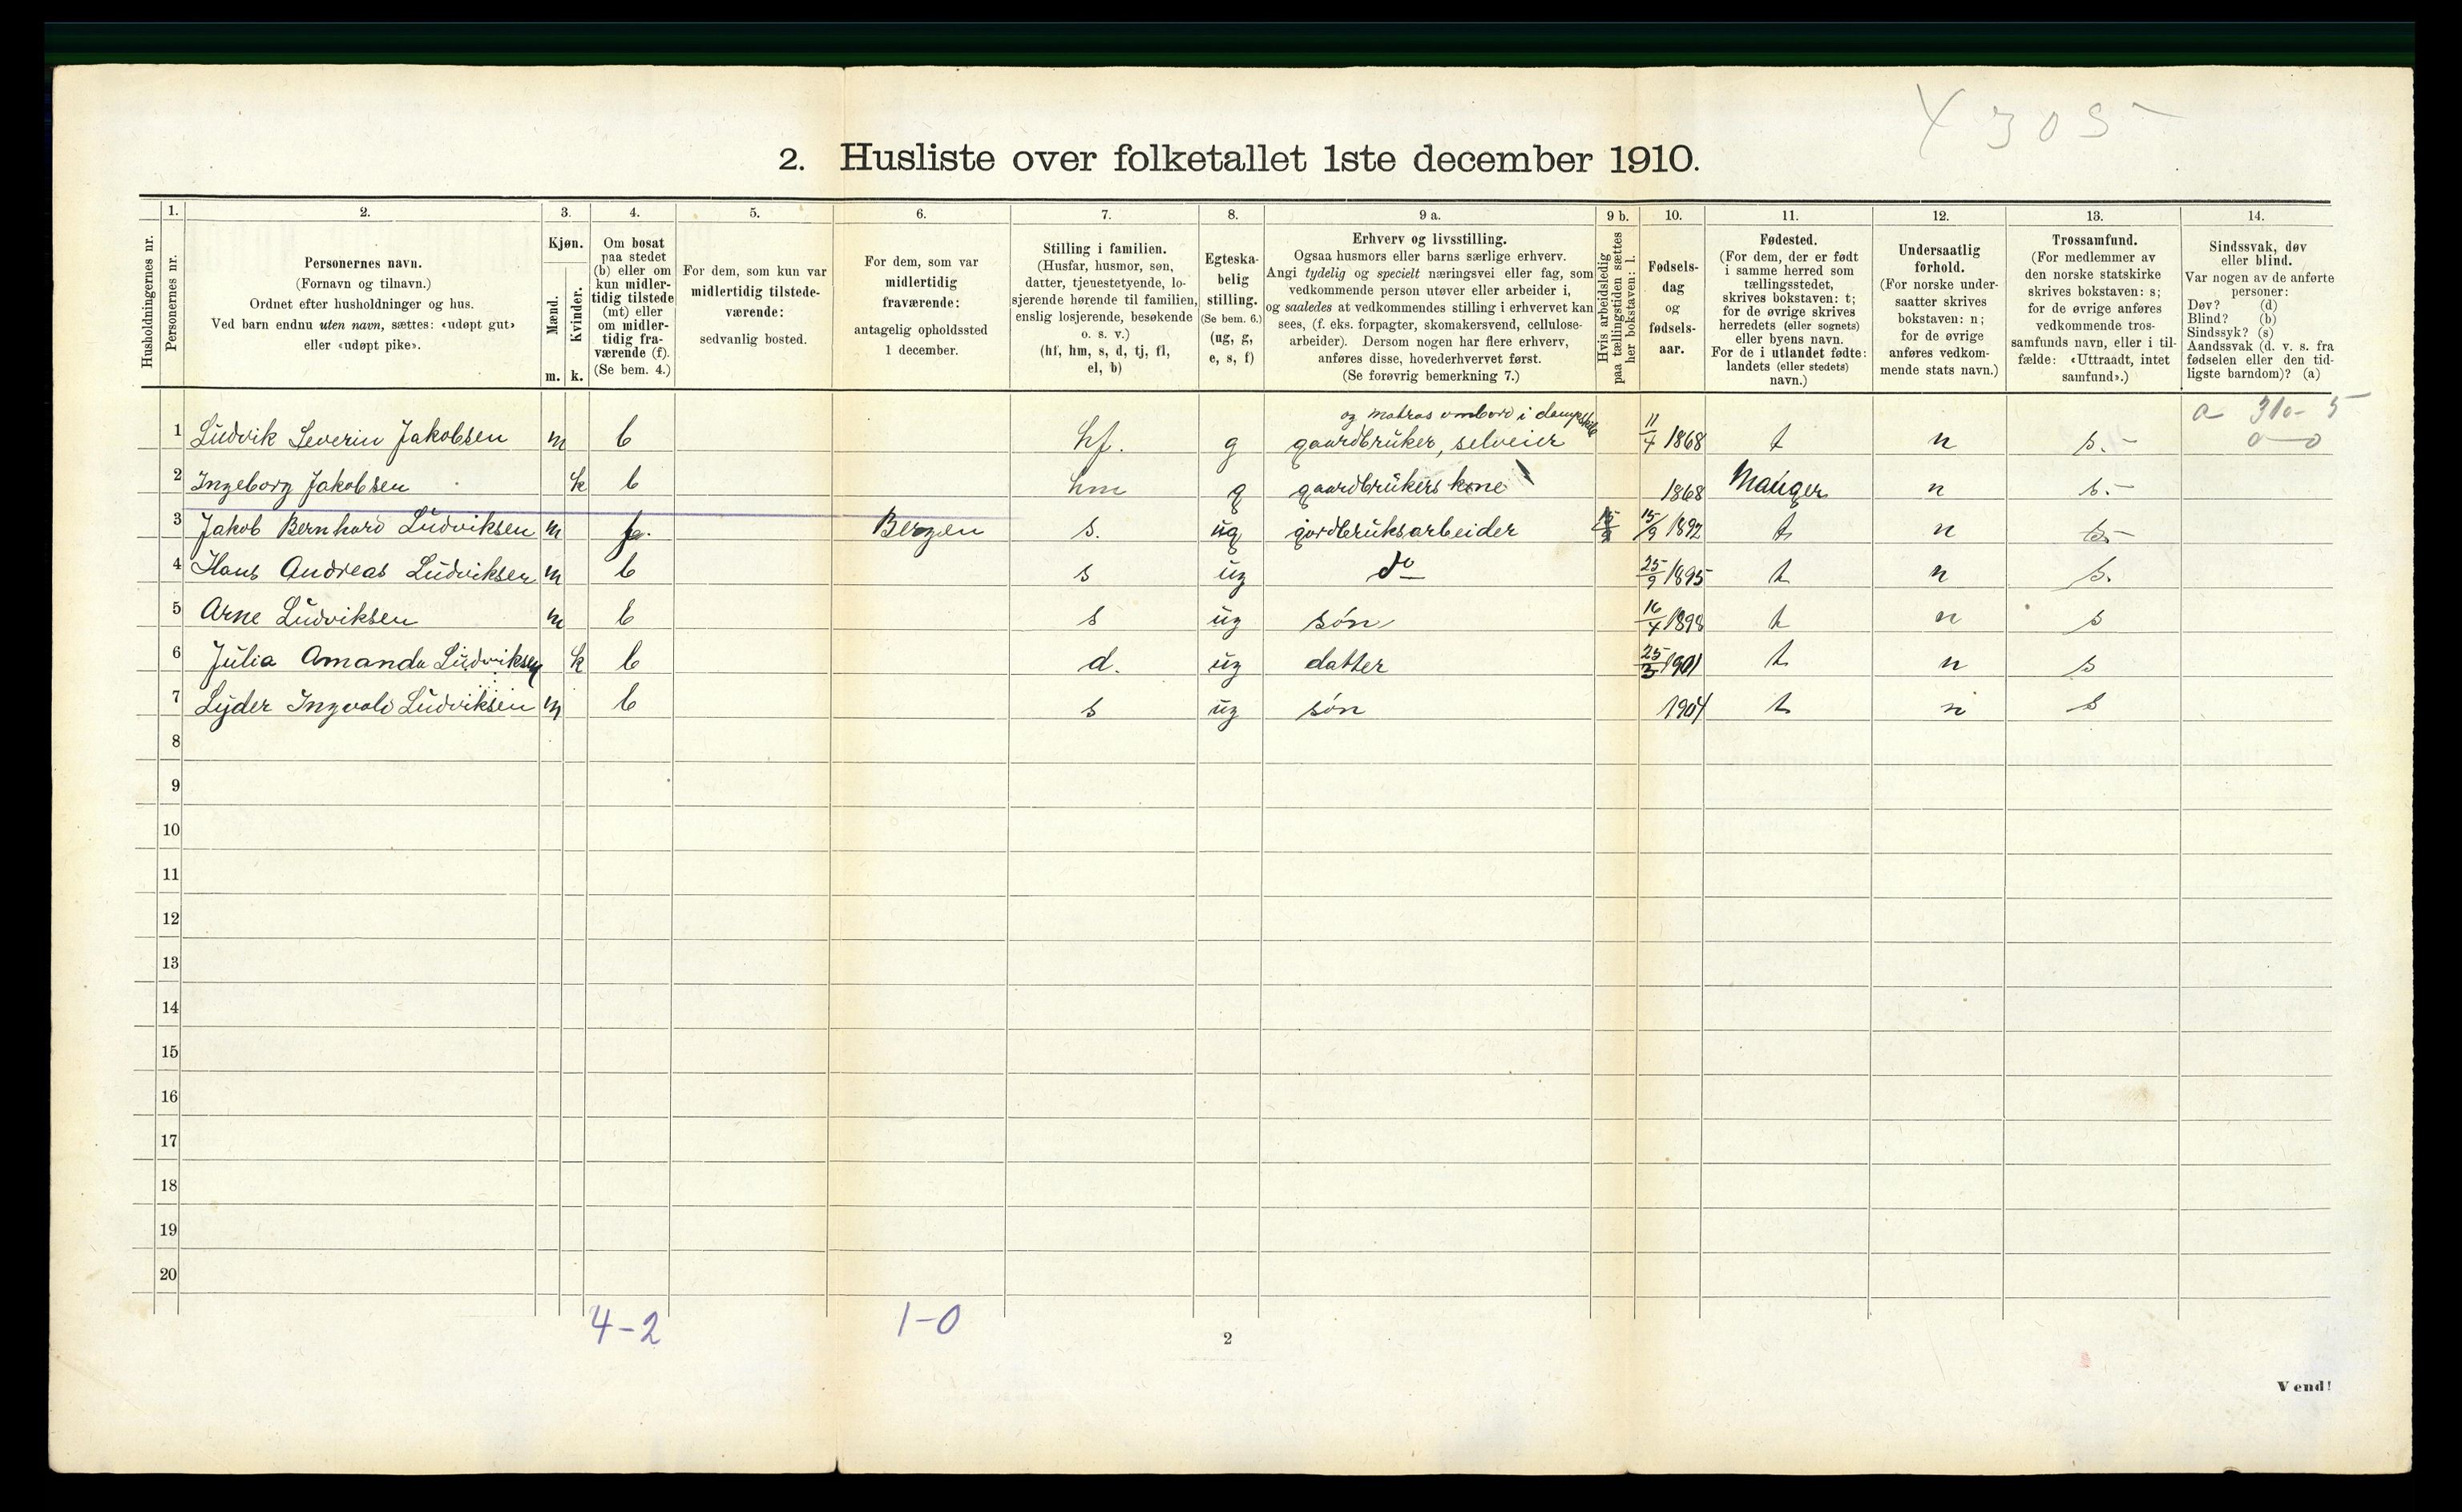 4305-
2. Husliste over folketallet 1ste december 1910.
Husholdningernes nr.
1. Personernes nr.
2. Personernes navn. (Fornavn og tilnavn.) Ordnet efter husholdninger og hus. Ved barn endnu uten navn, sættes: «udøpt gut» eller «udøpt pike».
3. Kjøn. Mænd. m. Kvinder. k.
4. Om bosat paa stedet (b) eller om kun midlertidig tilstede (mt) eller om midlertidig fraværende (f). (Se bem. 4.)
5. For dem, som kun var midlertidig tilstedeværende: sedvanlig bosted.
6. For dem, som var midlertidig fraværende: antagelig opholdssted 1 december.
7. Stilling i familien. (Husfar, husmor, søn, datter, tjenestetyende, losjerende hørende til familien, enslig losjerende, besøkende o. s. v.) (hf, hm, s, d, tj, fl, el, b)
8. Egteskabelig stilling. (Se bem. 6.) (ug, g, e, s, f)
9 a. Erhverv og livsstilling. Ogsaa husmors eller barns særlige erhverv. Angi tydelig og specielt næringsvei eller fag, som vedkommende person utøver eller arbeider i, og saaledes at vedkommendes stilling i erhvervet kan sees, (f. eks. forpagter, skomakersvend, cellulosearbeider). Dersom nogen har flere erhverv, anføres disse, hovederhvervet først. (Se forøvrig bemerkning 7.)
9 b. Hvis arbeidsledig paa tællingstiden sættes her bokstaven: l.
10. Fødselsdag og fødselsaar.
11. Fødested. (For dem, der er født i samme herred som tællingsstedet, skrives bokstaven: t; for de øvrige skrives herredets (eller sognets) eller byens navn. For de i utlandet fødte: landets (eller stedets) navn.)
12. Undersaatlig forhold. (For norske undersaatter skrives bokstaven: n; for de øvrige anføres vedkommende stats navn.)
13. Trossamfund. (For medlemmer av den norske statskirke skrives bokstaven: s; for de øvrige anføres vedkommende trossamfunds navn, eller i tilfælde: «Uttraadt, intet samfund».)
14. Sindssvak, døv eller blind. Var nogen av de anførte personer: Døv? (d) Blind? (b) Sindssyk? (s) Aandssvak (d. v. s. fra fødselen eller den tidligste barndom)? (a)
og matros ombord i dampskib a 310-5
1 Ludvik Severin Jakobsen m b hf. g gaardbruker, selveier 11/4 1868 t n s.- 0-0
2 Ingeborg Jakobsen k b hm g gaardbrukers kone 1868 Manger n s.-
3 Jakob Bernhard Ludviksen m f. Bergen s. ug gardbruksarbeider 15/9 1892 t n s.-
4 Hans Andreas Ludviksen m b s ug do 25/9 1895 t n s.
5 Arne Ludviksen m b s ug søn 16/4 1898 t n s
6 Julia Amanda Ludviksen k b d. ug datter 25/3 1901 t n s
7 Lyder Ingvald Ludviksen m b s ug søn 1904 t n s
8
9
10
11
12
13
14
15
16
17
18
19
20
4-2 1-0
2
Vend!